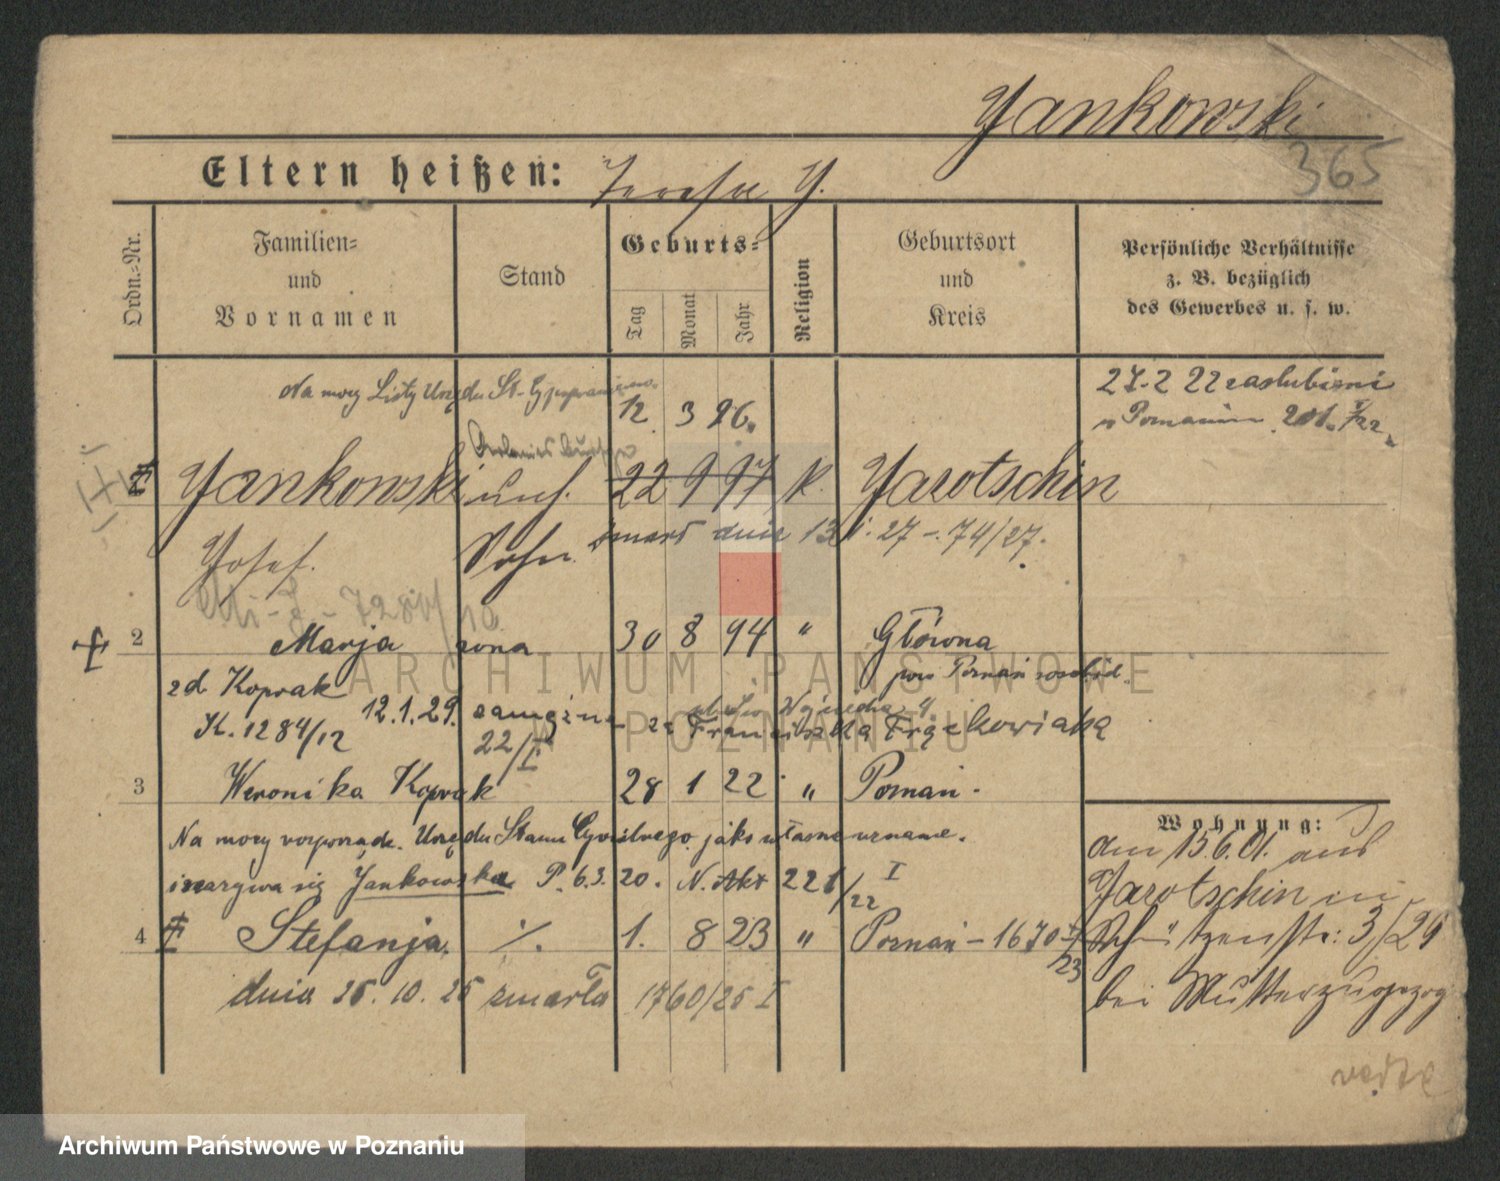 Yankowski
365
Eltern heißen: Teresa Y.
Ordn.-Nr.
Familien-
und
Vornamen
Stand
Geburts-
Tag
Monat
Jahr
Religion
Geburtsort
und
Kreis
Persönliche Verhältnisse
z. B. bezüglich
des Gewerbes u. s. w.
Na mocy Listy Urzędu St.
12 3 96.
27-2 22 zaslubieni
w Poznaniu
Yankowski unf. 22 9 97 K. Yarotschin
Josef. Sohn. zmarł dnia 13 1. 27 - 74/27.
2 Marja żona 30 8 94 " Główna
pow Poznań
zd. Koprak
K. 1284/12 12.1.29. zamężna Franciszka Frąckowiaka
22/I
3 Weronika Koprak 28 1 22 " Poznań.
Na mocy rozporządz. Urzędu Stanu Cywilnego jako własne uznane.
i nazywa się Yankowska P. 6.3. 20. N. Akt 221/22 I
4 Stefanja ./. 1. 8 23 " Poznań - 1670 I/23
dnia 25. 10. 25 zmarła 1760/25 I
Wohnung:
am 15.6.01. aus
Yarotschin in
Schützenstr: 3/29
bei Mutter zugezog
ARCHIWUM PAŃSTWOWE
W POZNANIU
Archiwum Państwowe w Poznaniu